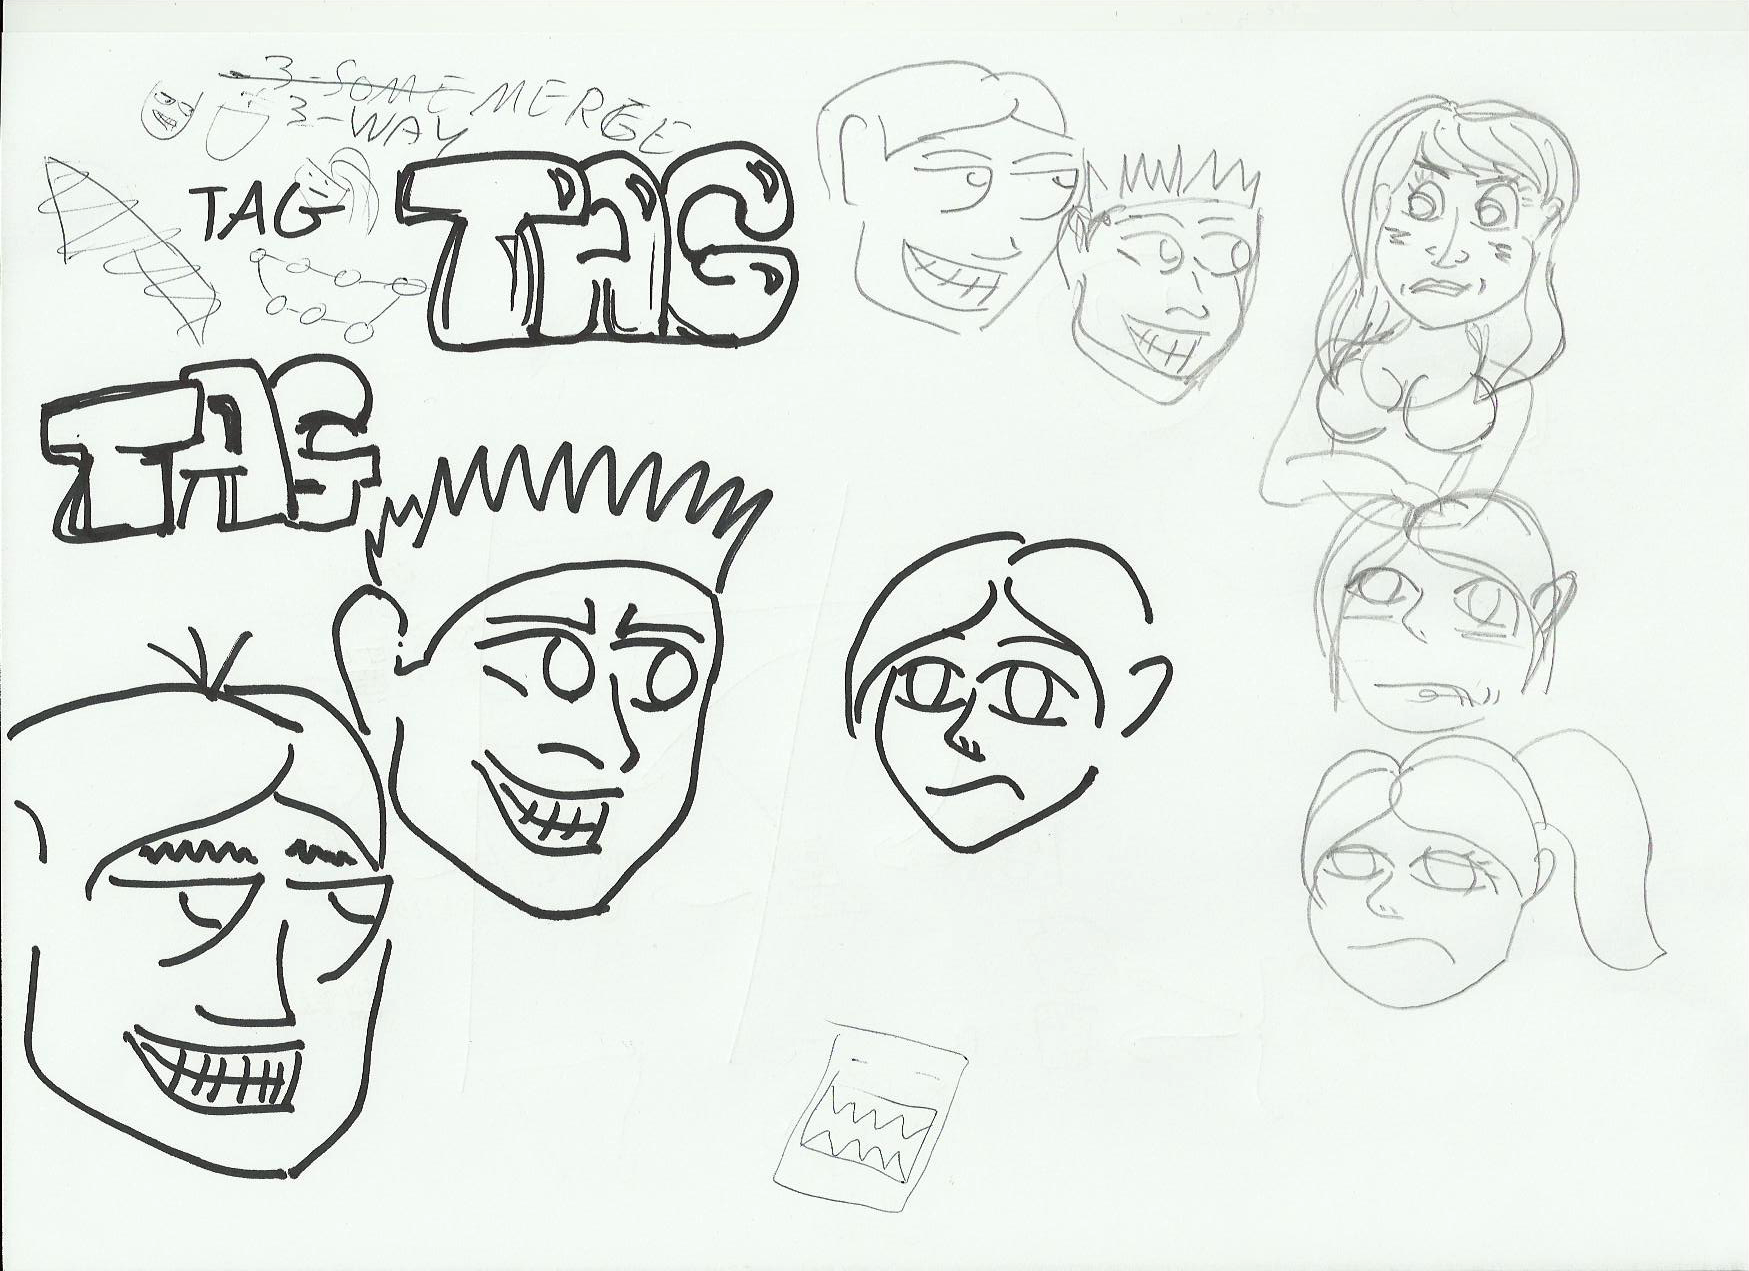 3-SOME MERGE
3-WAY
TAG
TAG
TAG